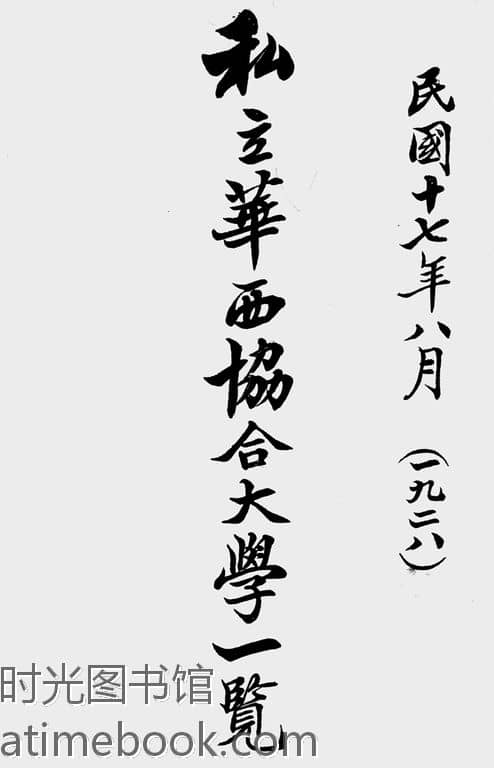 民國十七年八月 (一九二八)
私立華西協合大學一覽
时光图书馆
atimebook.com